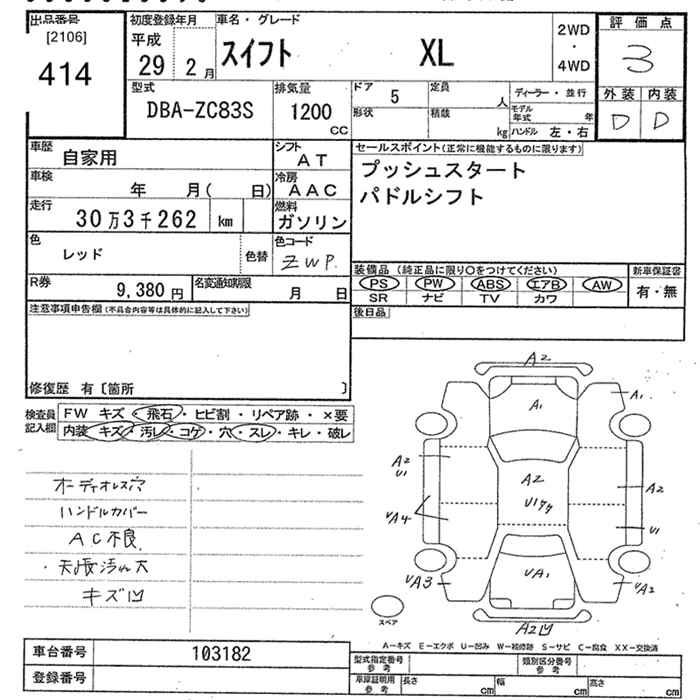 出品番号 初度登録年月 車名・グレード 評価点
[2106] 平成 スイフト XL 2WD
414 29 2月 ・ 3
4WD
型式 排気量 ドア 5 定員 人 ディーラー・並行 外装 内装
DBA-ZC83S 1200 cc 形状 積載 kg モデル年式 年 D D
ハンドル 左・右
車歴 自家用 シフト AT セールスポイント(正常に機能するものに限ります)
車検 年 月( 日) 冷房 AAC プッシュスタート
走行 30万3千262 km 燃料 ガソリン パドルシフト
色 レッド 色替 色コード ZWP
R券 9,380円 名変通知期限 月 日 装備品 (純正品に限り○をつけてください) 新車保証書
PS PW ABS エアB AW 有・無
SR ナビ TV カワ
注意事項申告欄(不具合内容等は具体的に記入して下さい) 後日品
修復歴 有〔箇所 〕
検査員記入欄 FW キズ・飛石・ヒビ割・リペア跡・×要
内装 キズ・汚レ・コゲ・穴・スレ・キレ・破レ
オーディオレス穴
ハンドルカバー
AC不良
・天張汚れ大
キズ凹
A2
A1
A1
A2
U1
A2
A2
U1
UA4
U1
UA3
UA1
UA2
A2凹
スペア
A-キズ E-エクボ U-凹み W-補修跡 S-サビ C-腐食 XX-交換済
車台番号 103182
登録番号
型式指定番号 参考 類別区分番号 参考
車庫証明用 参考 長さ cm 幅 cm 高さ cm